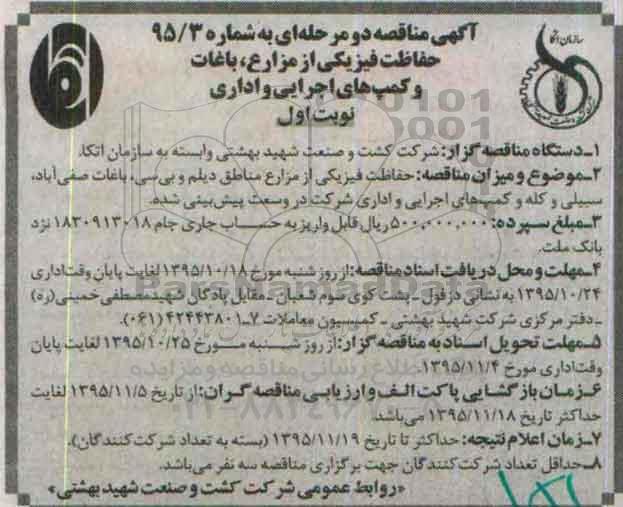 آگهی مناقصه دو مرحله‌ای به شماره ۹۵/۳
حفاظت فیزیکی از مزارع، باغات
و کمپ‌های اجرایی و اداری
نوبت اول
سازمان اتکا
۱ـ دستگاه مناقصه گزار: شرکت کشت و صنعت شهید بهشتی وابسته به سازمان اتکا.
۲ـ موضوع و میزان مناقصه: حفاظت فیزیکی از مزارع مناطق دیلم و بی‌سی، باغات صفی‌آباد،
سبیلی و کله و کمپ‌های اجرایی و اداری شرکت در وسعت پیش‌بینی شده.
۳ـ مبلغ سپرده: ۵۰۰,۰۰۰,۰۰۰ ریال قابل واریز به حساب جاری جام ۱۸۳۰۹۱۳۰۱۸ نزد
بانک ملت.
۴ـ مهلت و محل دریافت اسناد مناقصه: از روز شنبه مورخ ۱۳۹۵/۱۰/۱۸ لغایت پایان وقت اداری
۱۳۹۵/۱۰/۲۴ به نشانی دزفول ـ پشت کوی سوم شعبان ـ مقابل پادگان شهید مصطفی خمینی (ره)
ـ دفتر مرکزی شرکت شهید بهشتی ـ کمیسیون معاملات ۷ـ۴۲۴۴۳۸۰۱ (۰۶۱).
۵ـ مهلت تحویل اسناد به مناقصه گزار: از روز شنبه مورخ ۱۳۹۵/۱۰/۲۵ لغایت پایان
وقت اداری مورخ ۱۳۹۵/۱۱/۴
۶ـ زمان بازگشایی پاکت الف و ارزیابی مناقصه گران: از تاریخ ۱۳۹۵/۱۱/۵ لغایت
حداکثر تاریخ ۱۳۹۵/۱۱/۱۸ می‌باشد.
۷ـ زمان اعلام نتیجه: حداکثر تا تاریخ ۱۳۹۵/۱۱/۱۹ (بسته به تعداد شرکت کنندگان).
۸ـ حداقل تعداد شرکت کنندگان جهت برگزاری مناقصه سه نفر می‌باشد.
«روابط عمومی شرکت کشت و صنعت شهید بهشتی»